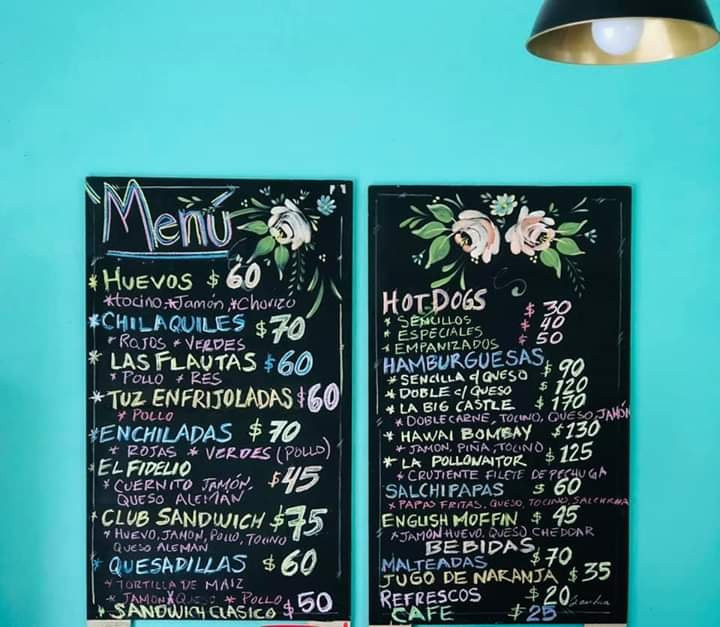 Menú
*HUEVOS $60
*tocino,*Jamón,*Chorizo
*CHILAQUILES $70
*ROJOS *VERDES
*LAS FLAUTAS $60
*POLLO *RES
*TUZ ENFRIJOLADAS $60
*POLLO
*ENCHILADAS $70
*ROJAS *VERDES (POLLO)
*EL FIDELIO $45
*CUERNITO JAMÓN,
QUESO ALEMÁN
*CLUB SANDWICH $75
*HUEVO, JAMON, POLLO, TOCINO
QUESO ALEMÁN
*QUESADILLAS $60
*TORTILLA DE MAIZ
*JAMON Y QUESO *POLLO
*SANDWICH CLASICO $50
HOTDOGS
*SENCILLOS $30
*ESPECIALES $40
*EMPANIZADOS $50
HAMBURGUESAS
*SENCILLA c/ QUESO $90
*DOBLE c/ QUESO $120
*LA BIG CASTLE $170
*DOBLE CARNE, TOCINO, QUESO, JAMÓN
*HAWAI BOMBAY $130
*JAMON, PIÑA, TOCINO
*LA POLLONAITOR $125
*CRUJIENTE FILETE DE PECHUGA
SALCHIPAPAS $60
*PAPAS FRITAS, QUESO, TOCINO, SALCHICHA
ENGLISH MOFFIN $45
*JAMON HUEVO, QUESO CHEDDAR
BEBIDAS
MALTEADAS $70
JUGO DE NARANJA $35
REFRESCOS $20
CAFE $25